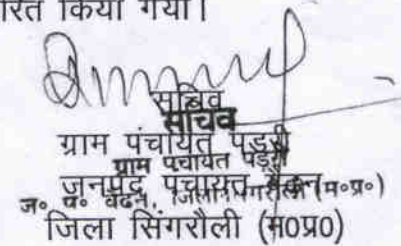 रित किया गया।
सचिव
सचिव
ग्राम पंचायत पड़री
ग्राम पंचायत पड़री
जनपद पंचायत बैढ़न
ज० पं० बैढन, जिला-सिंगरौली (म०प्र०)
जिला सिंगरौली (म0प्र0)